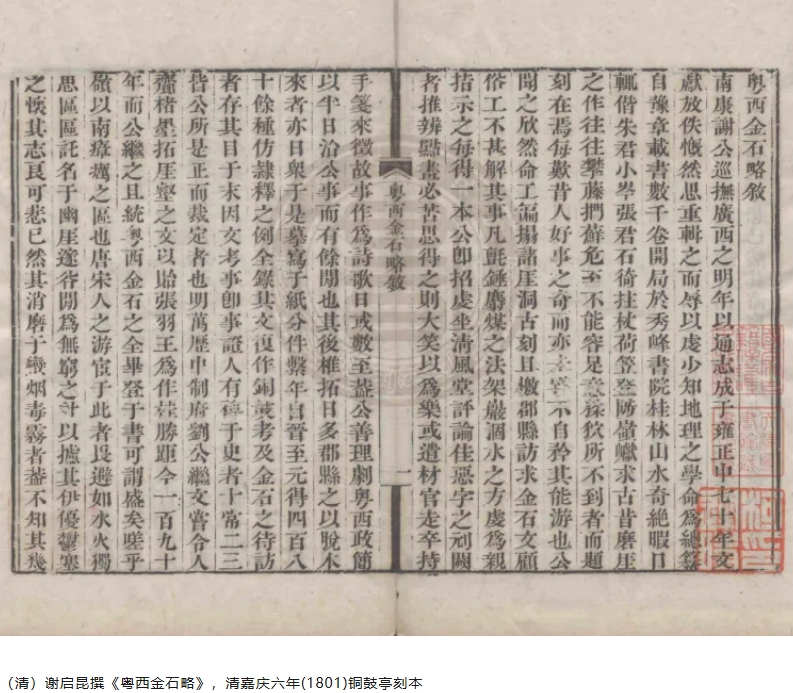 粵西金石略敘
南康謝公巡撫廣西之明年以通志成于雍正中七十年文
獻放佚慨然思重輯之而辱以虔少知地理之學命為總纂
自豫章載書數千卷開局於秀峰書院桂林山水奇絕暇日
輒偕朱君小岑張君石衙拄杖荷笠登陟巖巘求古昔磨厓
之作往往攀藤捫蘚危至不能容足意猱狖所不到者而題
刻在焉每歎昔人好事之奇而亦不自矜其能游也公
聞之欣然命工徧搨諸厓洞古刻且檄郡縣訪求金石文顧
俗工不甚解其事凡氈錘麝煤之法架巖涸水之方虔為親
指示之每得一本公即招虔坐清風堂評論佳惡字之刓闕
者推辨點畫必苦思得之則大笑以為樂或遣材官走卒持
粵西金石略敘
一
手箋來徵故事作為詩歌日或數至蓋公善理劇粵西政簡
以半日治公事而有餘閒也其後椎拓日多郡縣之以脫本
來者亦日衆于是摹寫于紙分件繫年自晉至元得四百八
十餘種仿隸釋之例全錄其文復作銅鼓考及金石之待訪
者存其目于末因文考事即事證人有裨于史者十常二三
皆公所是正而裁定者也明萬歷中制府劉公繼文嘗令人
齎楮墨拓厓壑之文以貽張羽王為作桂勝距今一百九十
年而公繼之且統粵西金石之全畢登于書可謂盛矣嗟乎
嶺以南瘴癘之區也唐宋人之游宦于此者畏避如水火獨
思區區託名于幽厓邃谷間為無窮之計以攄其伊優鬱塞
之懷其志良可悲已然其消磨于蠻烟毒霧者蓋不知其幾
（清）谢启昆撰《粤西金石略》，清嘉庆六年(1801)铜鼓亭刻本